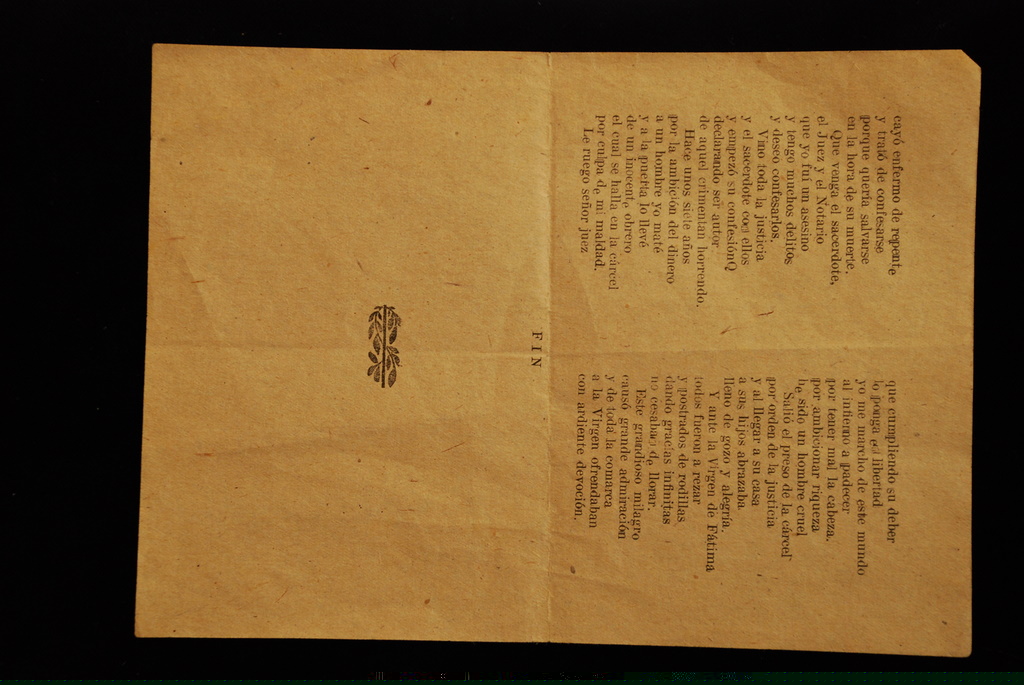 cayó enfermo de repente
y trató de confesarse
porque quería salvarse
en la hora de su muerte.
Que venga el sacerdote,
el Juez y el Notario
que yo fui un asesino
y tengo muchos delitos
y deseo confesarlos.
Vino toda la justicia
y el sacerdote con ellos
y empezó su confesiónQ
declarando ser autor
de aquel crimentan horrendo.
Hace unos siete años
por la ambición del dinero
a un hombre yo maté
y a la puerta lo llevé
de un inocente obrero
el cual se halla en la cárcel
por culpa de mi maldad.
Le ruego señor juez
que cumpliendo su deber
lo ponga en libertad
yo me marcho de este mundo
al infierno a padecer
por tener mal la cabeza.
por ambicionar riqueza
he sido un hombre cruel
Salió el preso de la cárcel
por orden de la justicia
y al llegar a su casa
a sus hijos abrazaba
lleno de gozo y alegría.
Y ante la Virgen de Fátima
todos fueron a rezar
y postrados de rodillas
dando gracias infinitas
no cesaban de llorar.
Este grandioso milagro
causó grande admiración
y de toda la comarca
a la Virgen ofrendaban
con ardiente devoción.
FIN